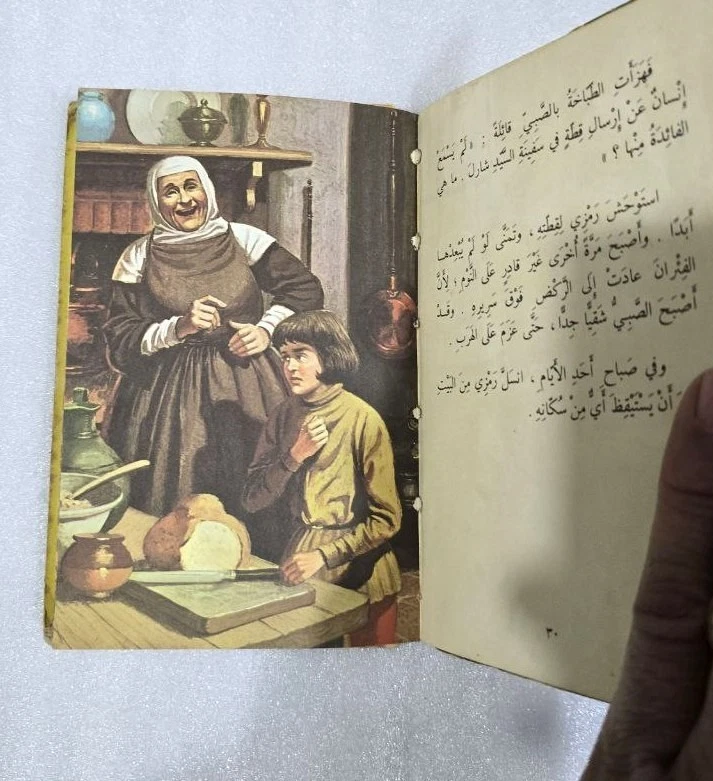 فَهَزَأَتِ الطَّبَّاخَةُ بِالصَّبِيِّ قَائِلَةً : « لَمْ يَسْمَعْ
إِنْسَانٌ عَنْ إِرْسَالِ قِطَّةٍ فِي سَفِينَةِ السَّيِّدِ شَارِلَ . مَا هِيَ
الفَائِدَةُ مِنْهَا ؟ »
اسْتَوْحَشَ رَمْزِي لِقِطَّتِهِ ، وَتَمَنَّى لَوْ لَمْ يُبْعِدْهَا
أَبَدًا . وَأَصْبَحَ مَرَّةً أُخْرَى غَيْرَ قَادِرٍ عَلَى النَّوْمِ ؛ لِأَنَّ
الفِئْرَانَ عَادَتْ إِلَى الرَّكْضِ فَوْقَ سَرِيرِهِ . وَقَدْ
أَصْبَحَ الصَّبِيُّ شَقِيًّا جِدًّا ، حَتَّى عَزَمَ عَلَى الهَرَبِ .
وَفِي صَبَاحِ أَحَدِ الأَيَّامِ ، انْسَلَّ رَمْزِي مِنَ البَيْتِ
أَنْ يَسْتَيْقِظَ أَيٌّ مِنْ سُكَّانِهِ .
٣٠